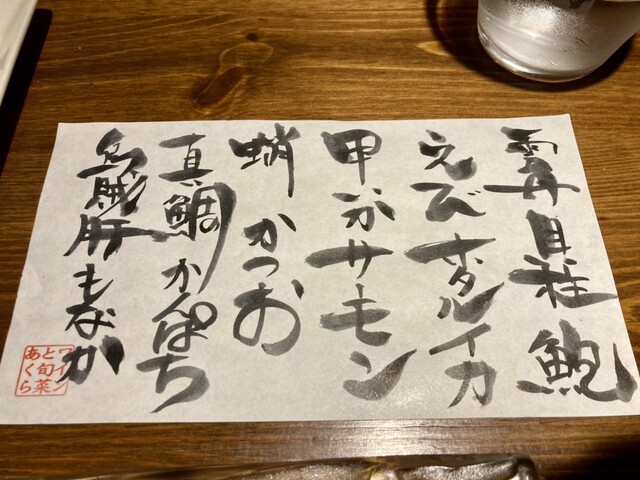 雲丹 貝柱 鮑
えび ホタルイカ
甲いか サーモン
蛸 かつお
真鯛 かんぱち
烏賊肝もなか
ワイン
と旬菜
あくら